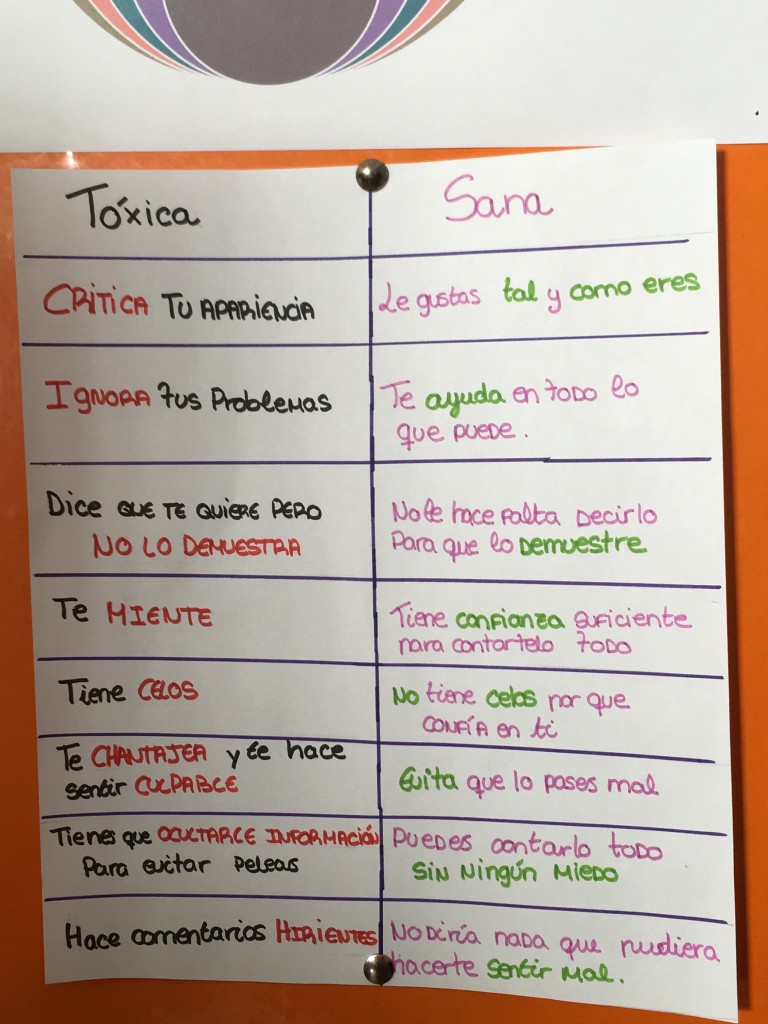 Tóxica
Sana
CRITICA TU APARIENCIA
Le gustas tal y como eres
IGNORA tus Problemas
Te ayuda en todo lo
que puede.
Dice QUE TE QUIERE PERO
NO LO DEMUESTRA
No le hace falta decirlo
Para que lo DEMUESTRE
Te MIENTE
Tiene confianza suficiente
para contartelo todo
Tiene CELOS
No tiene celos por que
CONFÍA en ti
Te CHANTAJEA y te hace
sentir CULPABLE
Evita que lo pases mal
Tienes que OCULTARCE INFORMACIÓN
Para evitar peleas
PUEDES contarlo todo
SIN Ningún MIEDO
Hace comentarios HIRIENTES
No Diría nada que pudiera
hacerte sentir mal.